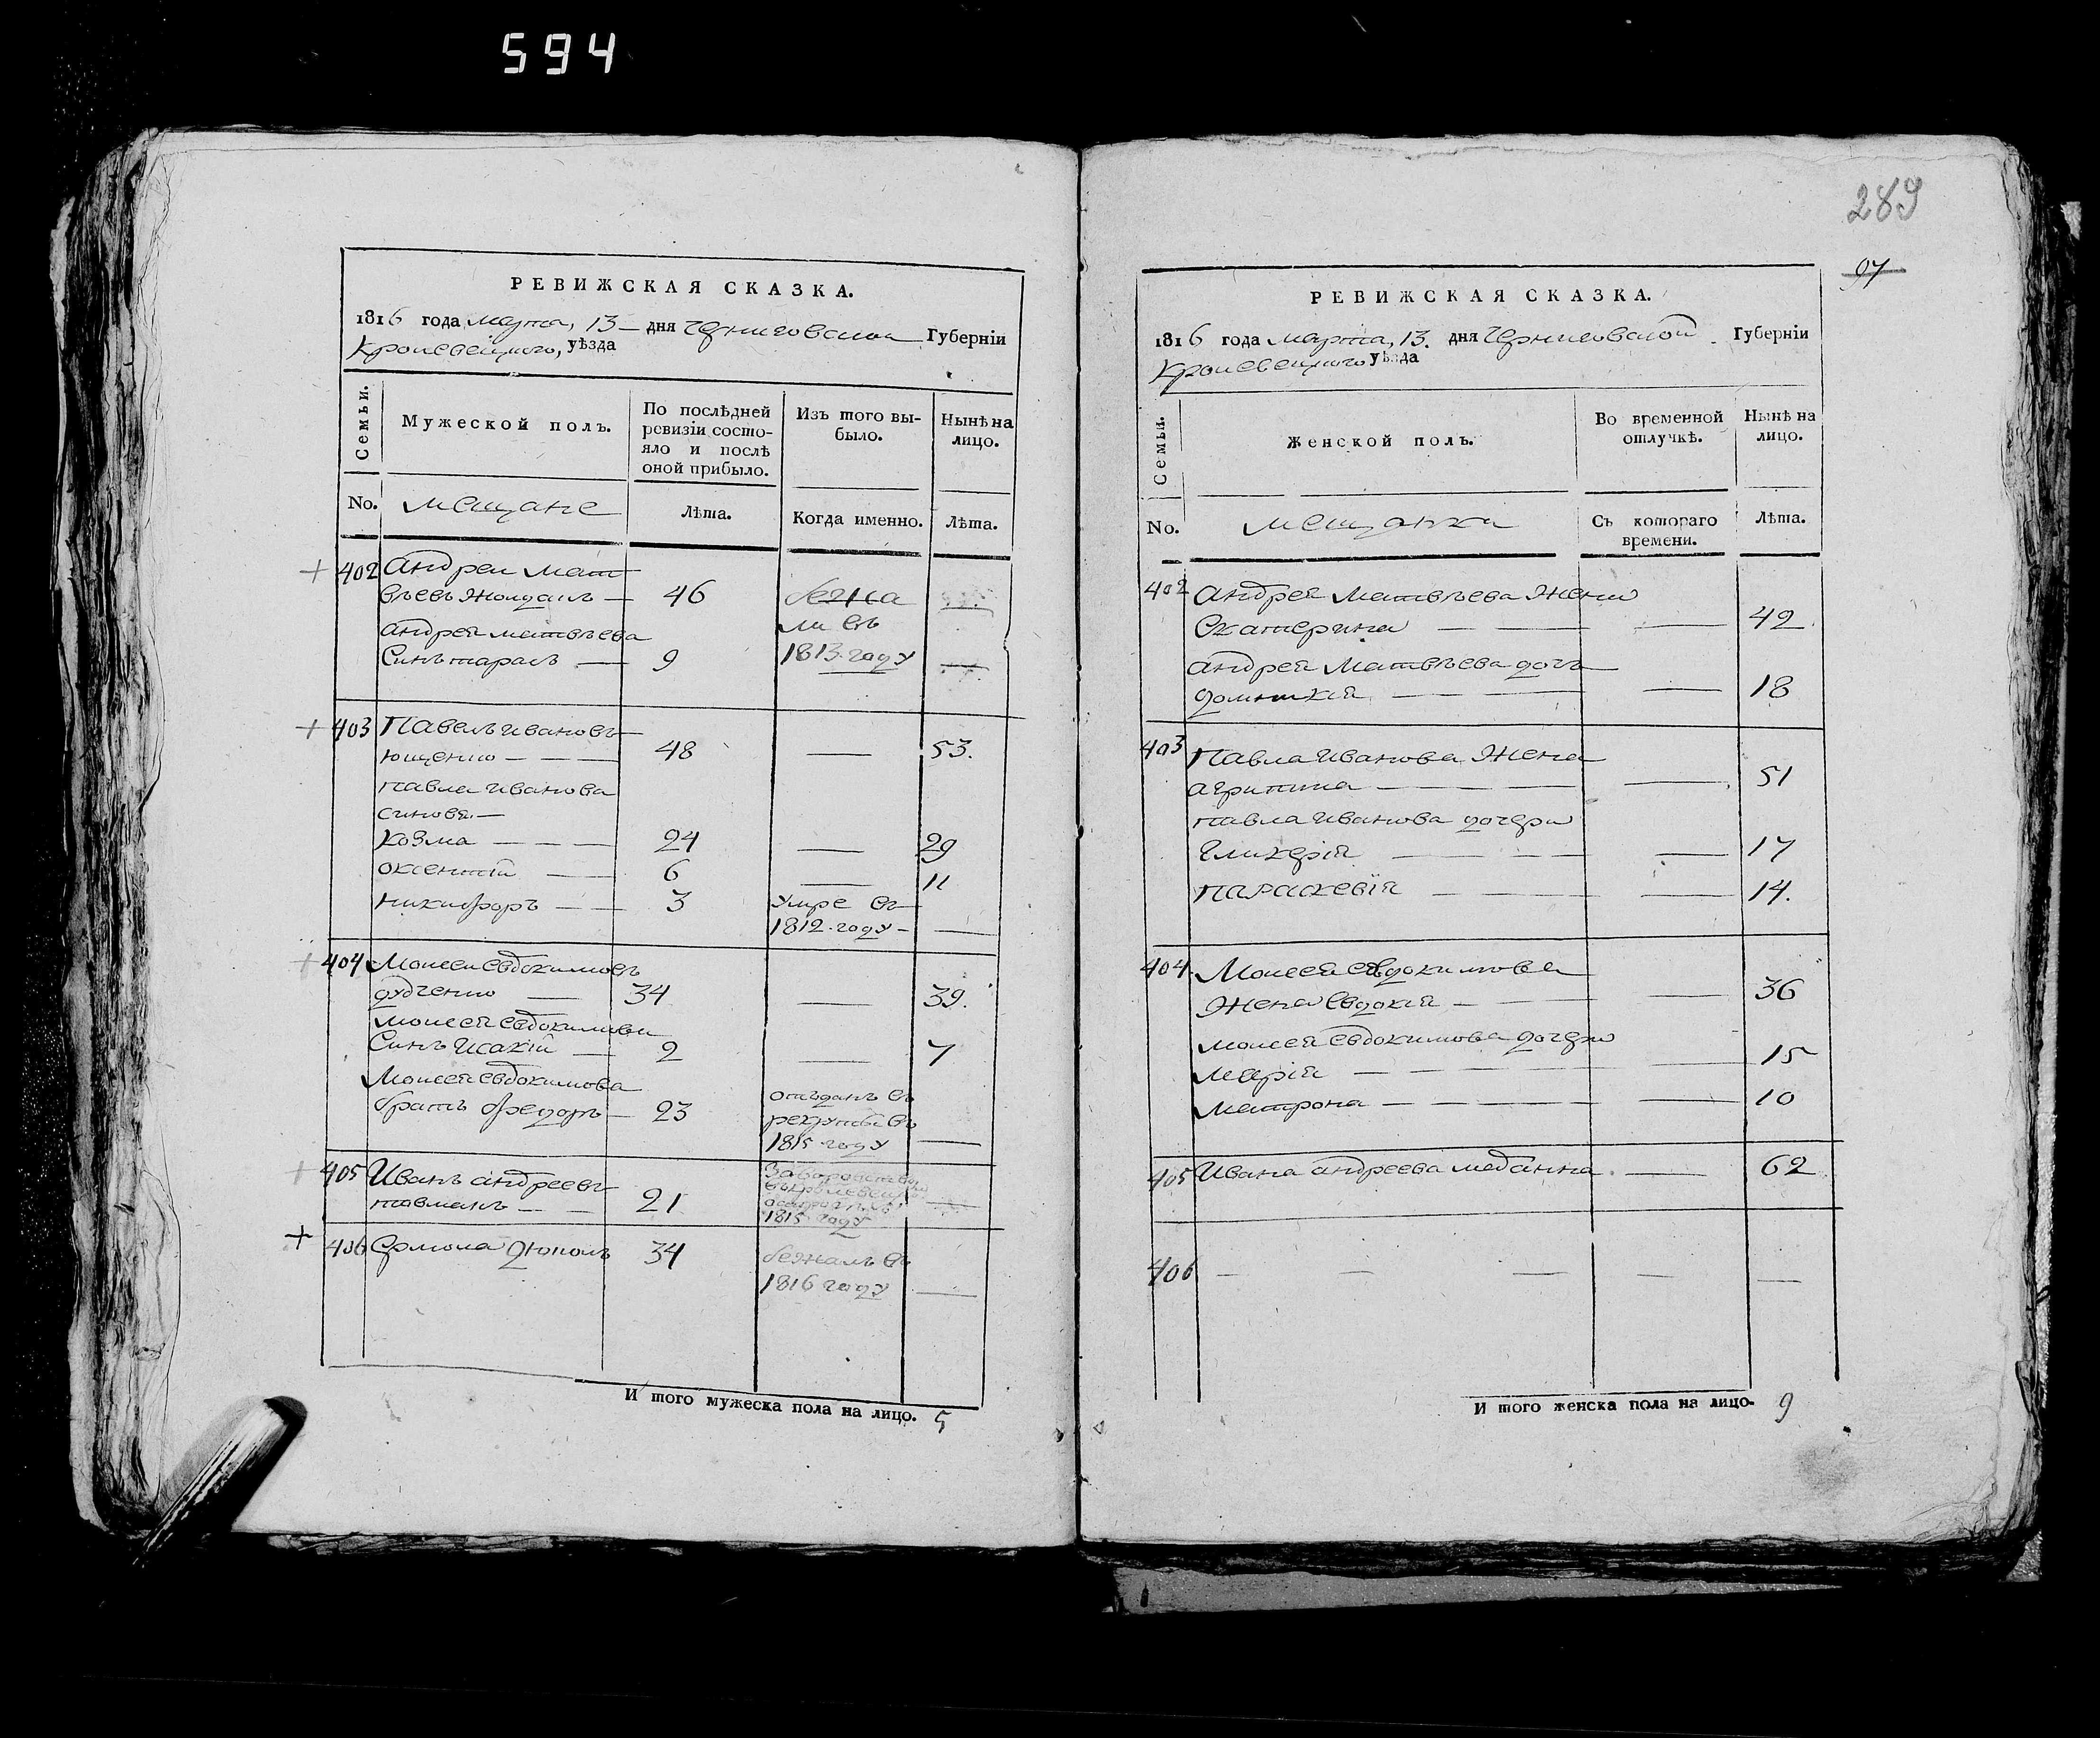 594
РЕВИЖСКАЯ СКАЗКА.
1816 года марта, 13 — дня Черниговской Губерніи
Кролевецкого, уѣзда
Семьи.
Мужеской полъ.
По послѣдней ревизіи состояло и послѣ оной прибыло.
Изъ того выбыло.
Нынѣ на лицо.
No.
мещане
Лѣта.
Когда именно.
Лѣта.
+ 402 Андреи Мат
вѣевъ — 46
андрея матвѣева
Синъ тарасъ — 9 1813 году —
+ 403 Павелъ Ивановъ
ющенко — — — 48 — 53.
павла иванова
синовя. —
козма — — — 24 — 29
оксентій — 6 — 11
никифоръ — — 3 умре въ
1812. году — —
+ 404 Моисеи евдокимовъ
дудченко — 34 — 39.
моисея евдокимова
Синъ Исакій — 2 — 7
Моисея евдокимова
братъ федоръ — 23 отъданъ въ
рекруты въ
1815 году —
+ 405 Иванъ андреевъ
— — 21
1815 году
+ 406 Ермола 34 бежалъ въ
1816 году —
И того мужеска пола на лицо. 5
289
97
РЕВИЖСКАЯ СКАЗКА.
1816 года марта, 13. дня Черниговской Губерніи
Кролевецкого уѣзда
Семьи.
Женской полъ.
Во временной отлучкѣ.
Нынѣ на лицо.
No.
мещанки
Съ котораго времени.
Лѣта.
402 Андрея Матвѣева Жена
Екатерина — — — 42
андрея Матвѣева дочь
домникія — — — 18
403 Павла Иванова Жена
агрипина — — — — 51
павла Иванова дочери
Гликерія — — — — 17
параскевія — — — 14.
404. Моисея евдокимова
Жена Евдокія — — — 36
моисея евдокимова дочери
марія — — — — — 15
матрона — — — — — 10
405 Ивана андреева — 62
406 — — — — —
И того женска пола на лицо. 9